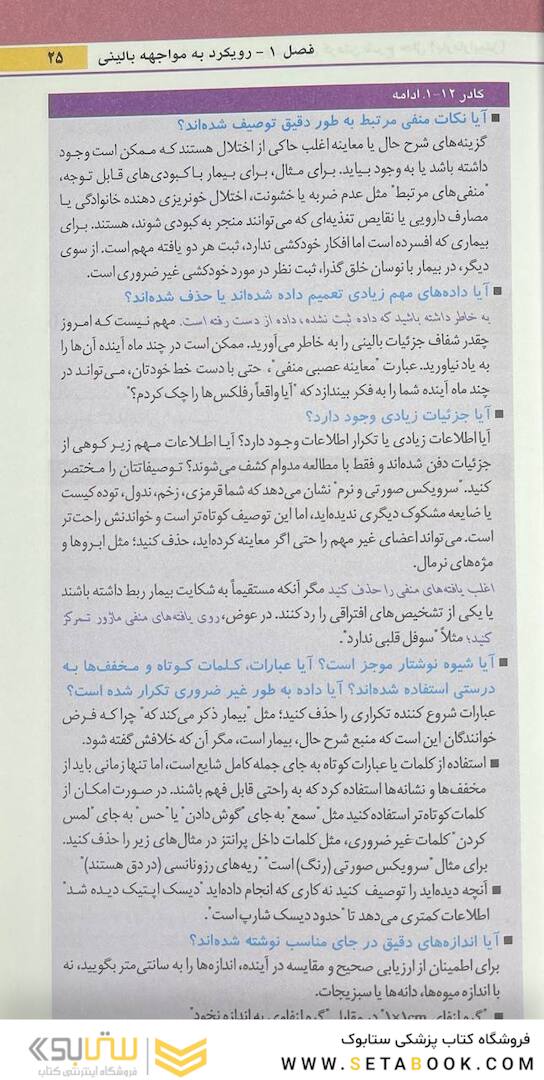 فصل ۱ – رویکرد به مواجهه بالینی ۲۵
کادر ۱۲-۱. ادامه
■ آیا نکات منفی مرتبط به طور دقیق توصیف شده‌اند؟
گزینه‌های شرح حال یا معاینه اغلب حاکی از اختلال هستند که ممکن است وجود
داشته باشد یا به وجود بیاید. برای مثال، برای بیمار با کبودی‌های قابل توجه،
"منفی‌های مرتبط" مثل عدم ضربه یا خشونت، اختلال خونریزی دهنده خانوادگی یا
مصارف دارویی یا نقایص تغذیه‌ای که می‌توانند منجر به کبودی شوند، هستند. برای
بیماری که افسرده است اما افکار خودکشی ندارد، ثبت هر دو یافته مهم است. از سوی
دیگر، در بیمار با نوسان خلق گذرا، ثبت نظر در مورد خودکشی غیر ضروری است.
■ آیا داده‌های مهم زیادی تعمیم داده شده‌اند یا حذف شده‌اند؟
به خاطر داشته باشید که داده ثبت نشده، داده از دست رفته است. مهم نیست که امروز
چقدر شفاف جزئیات بالینی را به خاطر می‌آورید. ممکن است در چند ماه آینده آن‌ها را
به یاد نیاورید. عبارت "معاینه عصبی منفی"، حتی با دست خط خودتان، می‌تواند در
چند ماه آینده شما را به فکر بیندازد که "آیا واقعاً رفلکس‌ها را چک کردم؟"
■ آیا جزئیات زیادی وجود دارد؟
آیا اطلاعات زیادی یا تکرار اطلاعات وجود دارد؟ آیا اطلاعات مهم زیر کوهی از
جزئیات دفن شده‌اند و فقط با مطالعه مدوام کشف می‌شوند؟ توصیفاتتان را مختصر
کنید. "سرویکس صورتی و نرم" نشان می‌دهد که شما قرمزی، زخم، ندول، توده کیست
یا ضایعه مشکوک دیگری ندیده‌اید، اما این توصیف کوتاه‌تر است و خواندنش راحت‌تر
است. می‌تواند اعضای غیر مهم را حتی اگر معاینه کرده‌اید، حذف کنید؛ مثل ابروها و
مژه‌های نرمال.
اغلب یافته‌های منفی را حذف کنید مگر آنکه مستقیماً به شکایت بیمار ربط داشته باشند
یا یکی از تشخیص‌های افتراقی را رد کنند. در عوض، روی یافته‌های منفی ماژور تمرکز
کنید؛ مثلاً "سوفل قلبی ندارد".
■ آیا شیوه نوشتار موجز است؟ آیا عبارات، کلمات کوتاه و مخفف‌ها به
درستی استفاده شده‌اند؟ آیا داده به طور غیر ضروری تکرار شده است؟
عبارات شروع کننده تکراری را حذف کنید؛ مثل "بیمار ذکر می‌کند که" چرا که فرض
خوانندگان این است که منبع شرح حال، بیمار است، مگر آن که خلافش گفته شود.
■ استفاده از کلمات یا عبارات کوتاه به جای جمله کامل شایع است، اما تنها زمانی باید از
مخفف‌ها و نشانه‌ها استفاده کرد که به راحتی قابل فهم باشند. در صورت امکان از
کلمات کوتاه‌تر استفاده کنید مثل "سمع" به جای "گوش دادن" یا "حس" به جای "لمس
کردن" کلمات غیر ضروری، مثل کلمات داخل پرانتز در مثال‌های زیر را حذف کنید.
برای مثال "سرویکس صورتی (رنگ) است" "ریه‌های رزونانسی (در دق هستند)"
■ آنچه دیده‌اید را توصیف کنید نه کاری که انجام داده‌اید "دیسک اپتیک دیده شد"
اطلاعات کمتری می‌دهد تا "حدود دیسک شارپ است".
■ آیا اندازه‌های دقیق در جای مناسب نوشته شده‌اند؟
برای اطمینان از ارزیابی صحیح و مقایسه در آینده، اندازه‌ها را به سانتی‌متر بگویید، نه
با اندازه میوه‌ها، دانه‌ها یا سبزیجات.
فروشگاه کتاب پزشکی ستابوک
WWW.SETABOOK.COM
ستابوک
فروشگاه اینترنتی کتاب